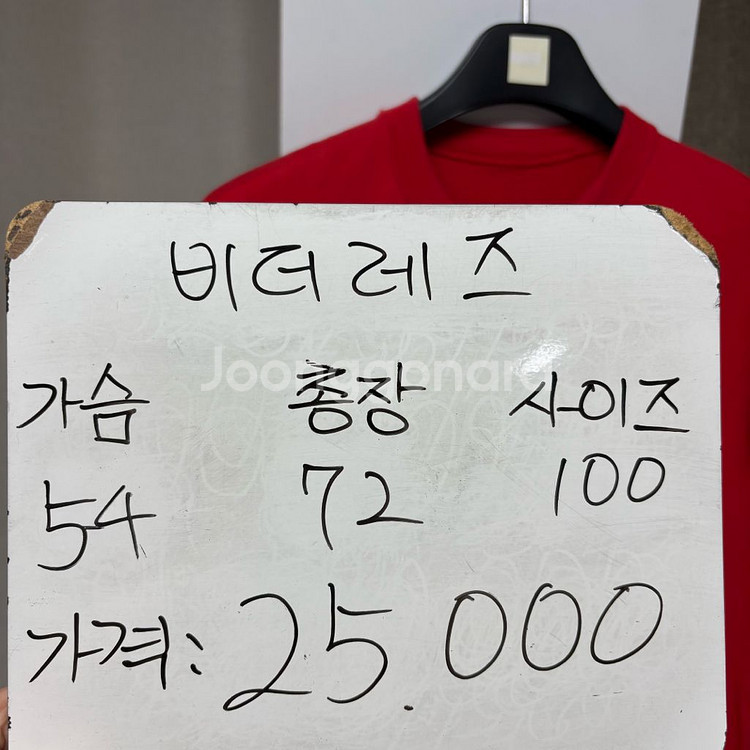 비더레즈
Joonggonara
가슴 총장 사이즈
54 72 100
가격: 25.000